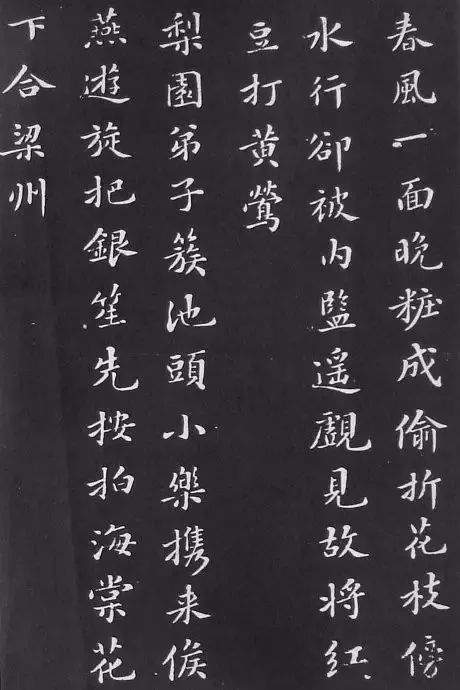 春風一面晚粧成偷折花枝傍
水行卻被內監遥觑見故將紅
豆打黃鶯
梨園弟子簇池頭小樂携来俟
燕遊旋把銀笙先按拍海棠花
下合梁州